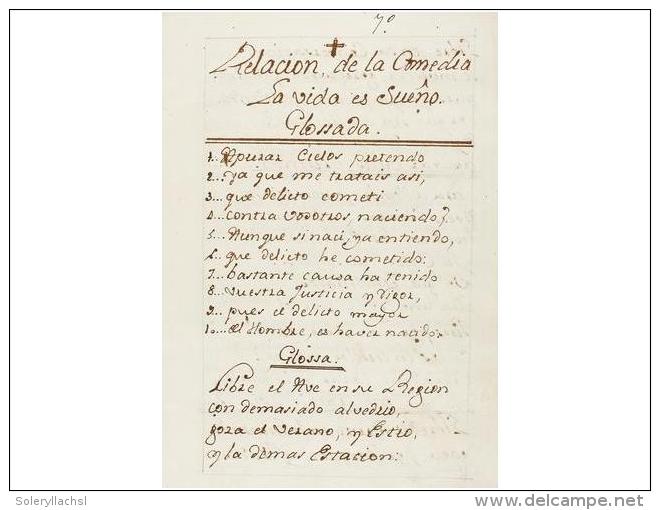 7º
Relacion, de la Comedia
La vida es Sueño.
Glossada.
1.. Apurar Cielos pretendo
2.. ya que me tratais asi,
3... que delicto cometi
4... contra vosotros naciendo?
5... Aunque si naci, ya entiendo,
6.. que delicto he cometido:
7... bastante causa ha tenido
8... vuestra Justicia y rigor,
9... pues el delicto mayor
10... del Hombre, es haver nacido.
Glossa.
Libre el Ave en su Region
con demasiado alvedrio,
goza el Verano, y Estio,
y la demas Estacion:
Soleryllachsl
delcampe.net